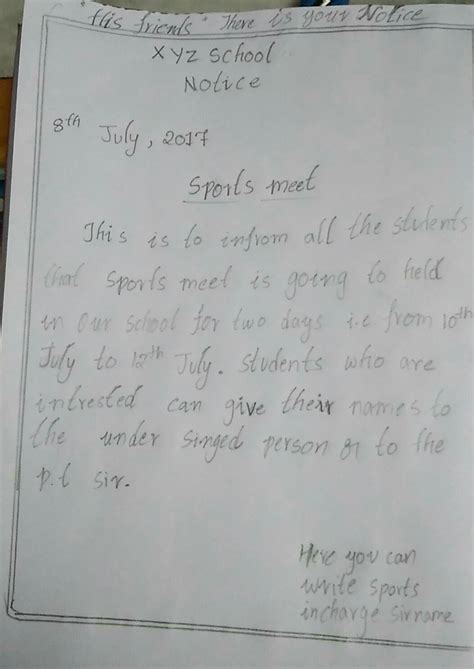 "His friends" There is your Notice
XYZ School
Notice
8th July, 2017
Sports meet
This is to infrom all the students
that sports meet is going to held
in our school for two days i.e from 10th
July to 12th July. Students who are
intrested can give their names to
the under singed person or to the
p.t sir.
Here you can
write sports
incharge sirname